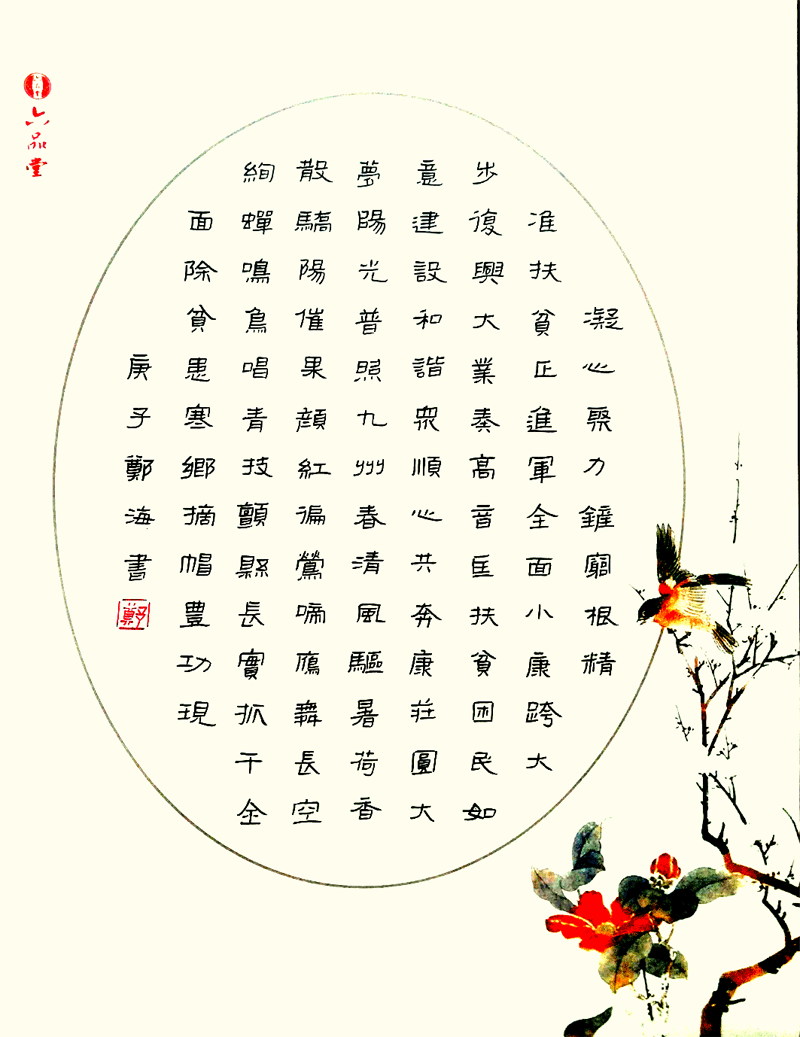 六品堂
凝心聚力鏟窮根精
准扶貧正進軍全面小康跨大
步復興大業奏高音匡扶貧困民如
意建設和諧眾順心共奔康莊圓大
夢陽光普照九州春清風驅暑荷香
散驕陽催果顏紅徧鶯啼鴈舞長空
絢蟬鳴鳥唱青技顫縣長實抓干全
面除貧患寒鄉摘帽豐功現
庚子鄭海書
鄭